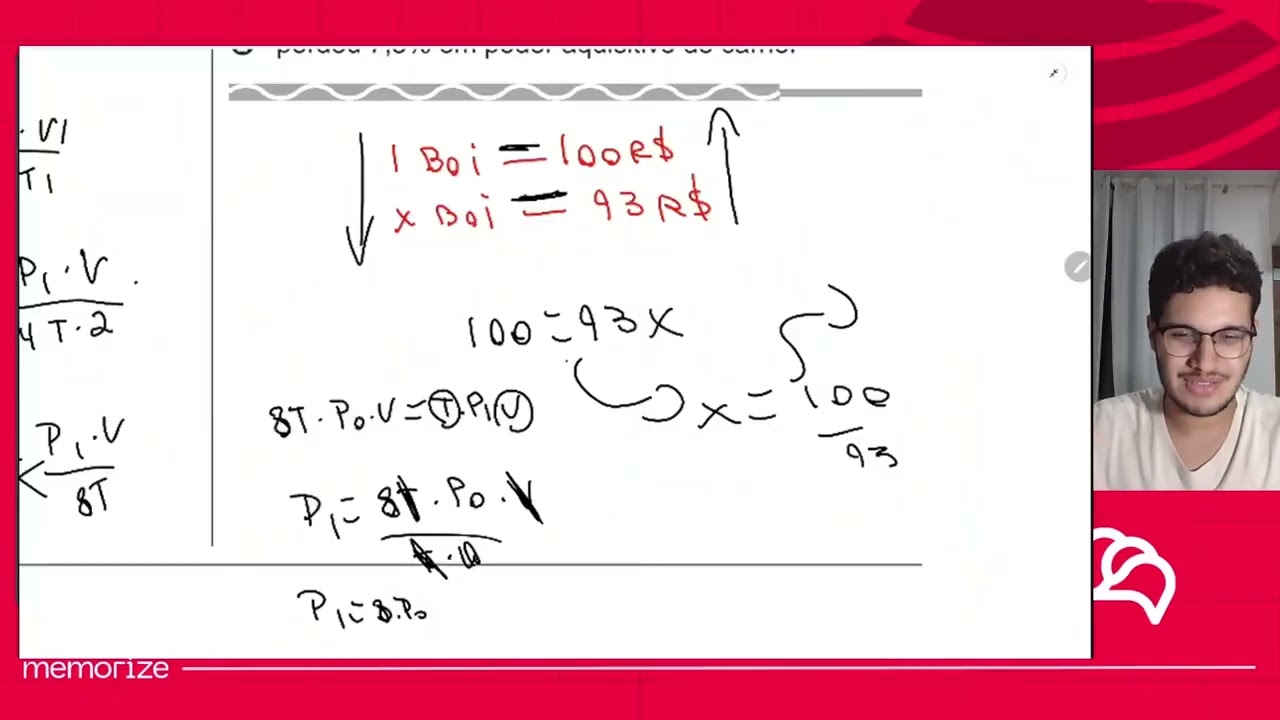 · V1
T1
P1 · V
4T · 2
P1 · V
8T
1 Boi = 100R$
x Boi = 93R$
100 = 93x
x = 100
93
8T · P0 · V = T · P1 V
P1 = 8T · P0 · V
P1 = 8.P0
memorize